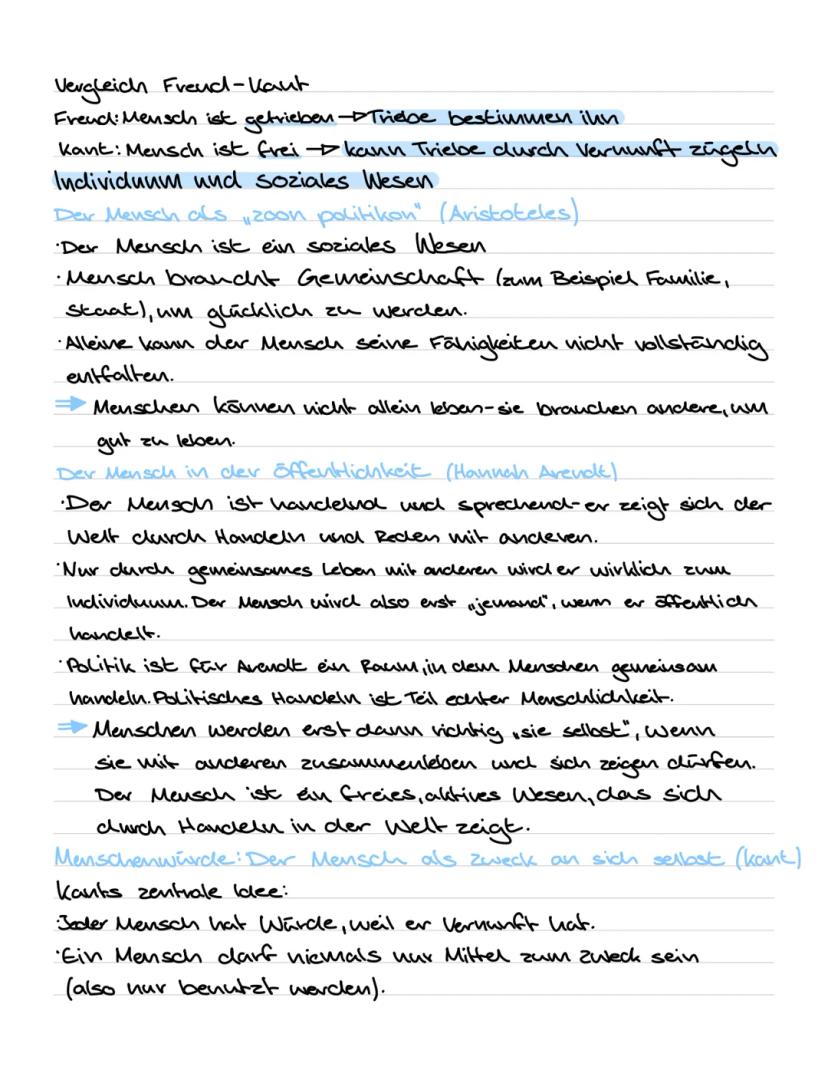 Vergleich Freud-Kant
Freud: Mensch ist getrieben → Triebe bestimmen ihn
Kant: Mensch ist frei → kann Triebe durch Vernunft zügeln
Individuum und soziales Wesen
Der Mensch als „zoon politikon" (Aristoteles)
·Der Mensch ist ein soziales Wesen
·Mensch braucht Gemeinschaft (zum Beispiel Familie,
Staat), um glücklich zu werden.
·Alleine kann der Mensch seine Fähigkeiten nicht vollständig
entfalten.
⇒ Menschen können nicht allein leben-sie brauchen andere, um
gut zu leben.
Der Mensch in der Öffentlichkeit (Hannah Arendt)
·Der Mensch ist handelnd und sprechend-er zeigt sich der
Welt durch Handeln und Reden mit anderen.
·Nur durch gemeinsames Leben mit anderen wird er wirklich zum
Individuum. Der Mensch wird also erst „jemand", wenn er öffentlich
handelt.
·Politik ist für Arendt ein Raum, in dem Menschen gemeinsam
handeln. Politisches Handeln ist Teil echter Menschlichkeit.
⇒ Menschen werden erst dann richtig „sie selbst", wenn
sie mit anderen zusammenleben und sich zeigen dürfen.
Der Mensch ist ein freies, aktives Wesen, das sich
durch Handeln in der Welt zeigt.
Menschenwürde: Der Mensch als Zweck an sich selbst (Kant)
Kants zentrale Idee:
·Jeder Mensch hat Würde, weil er Vernunft hat.
·Ein Mensch darf niemals nur Mittel zum Zweck sein
(also nur benutzt werden).